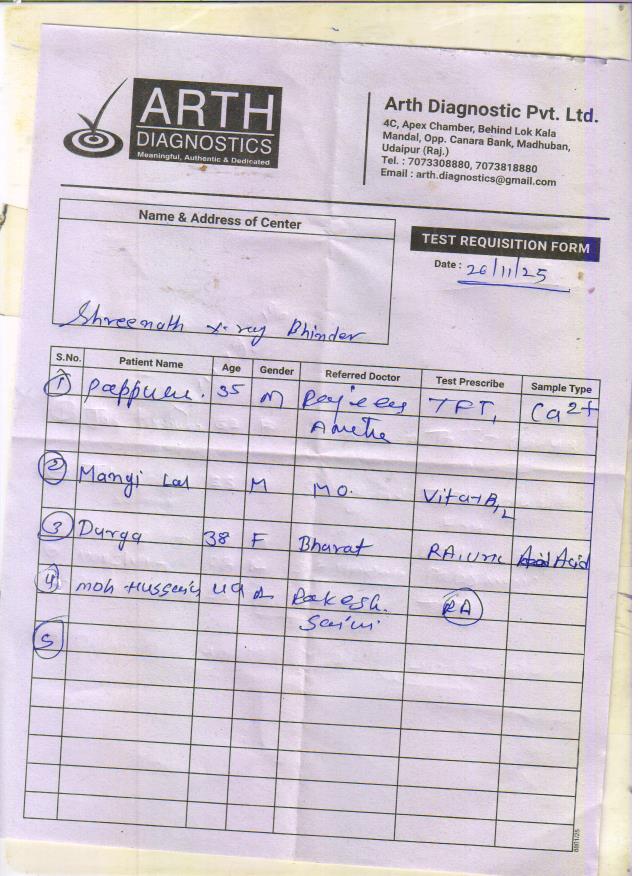 ARTH
DIAGNOSTICS
Meaningful, Authentic & Dedicated
Arth Diagnostic Pvt. Ltd.
4C, Apex Chamber, Behind Lok Kala
Mandal, Opp. Canara Bank, Madhuban,
Udaipur (Raj.)
Tel. : 7073308880, 7073818880
Email : arth.diagnostics@gmail.com
Name & Address of Center
TEST REQUISITION FORM
Date : 26/11/25
Shreenath X-ray Bhinder
S.No. Patient Name Age Gender Referred Doctor Test Prescribe Sample Type
1 35 M TFT, Ca2+
2 Mangi Lal M MO. Vita-B12
3 Durga 38 F Bharat RA, Uric Acid
4 moh Hussain 49 Rakesh RA
Saini
5